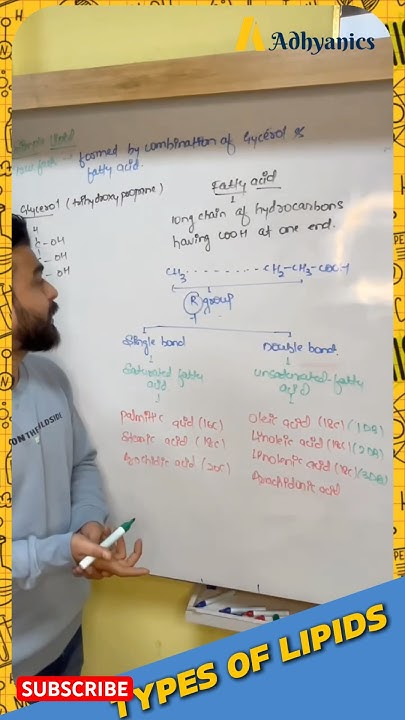 Adhyanics
Simple Lipid
formed by combination of Glycerol &
fatty acid.
Glycerol (trihydroxy propane)
H
C - OH
C - OH
C - OH
Fatty acid
long chain of hydrocarbons
having COOH at one end.
CH3 - - - - - - - - CH2-CH2-COOH
R group
Single bond
Double bond.
Saturated fatty
acid
unsaturated fatty
acid
Palmitic acid (16C)
Stearic acid (18C)
Arachidic acid (20C)
Oleic acid (18C) (1DB)
Linoleic acid (18C) (2DB)
Linolenic acid (18C) (3DB)
Arachidonic acid
ON THE FIELDSIDE
SUBSCRIBE
TYPES OF LIPIDS